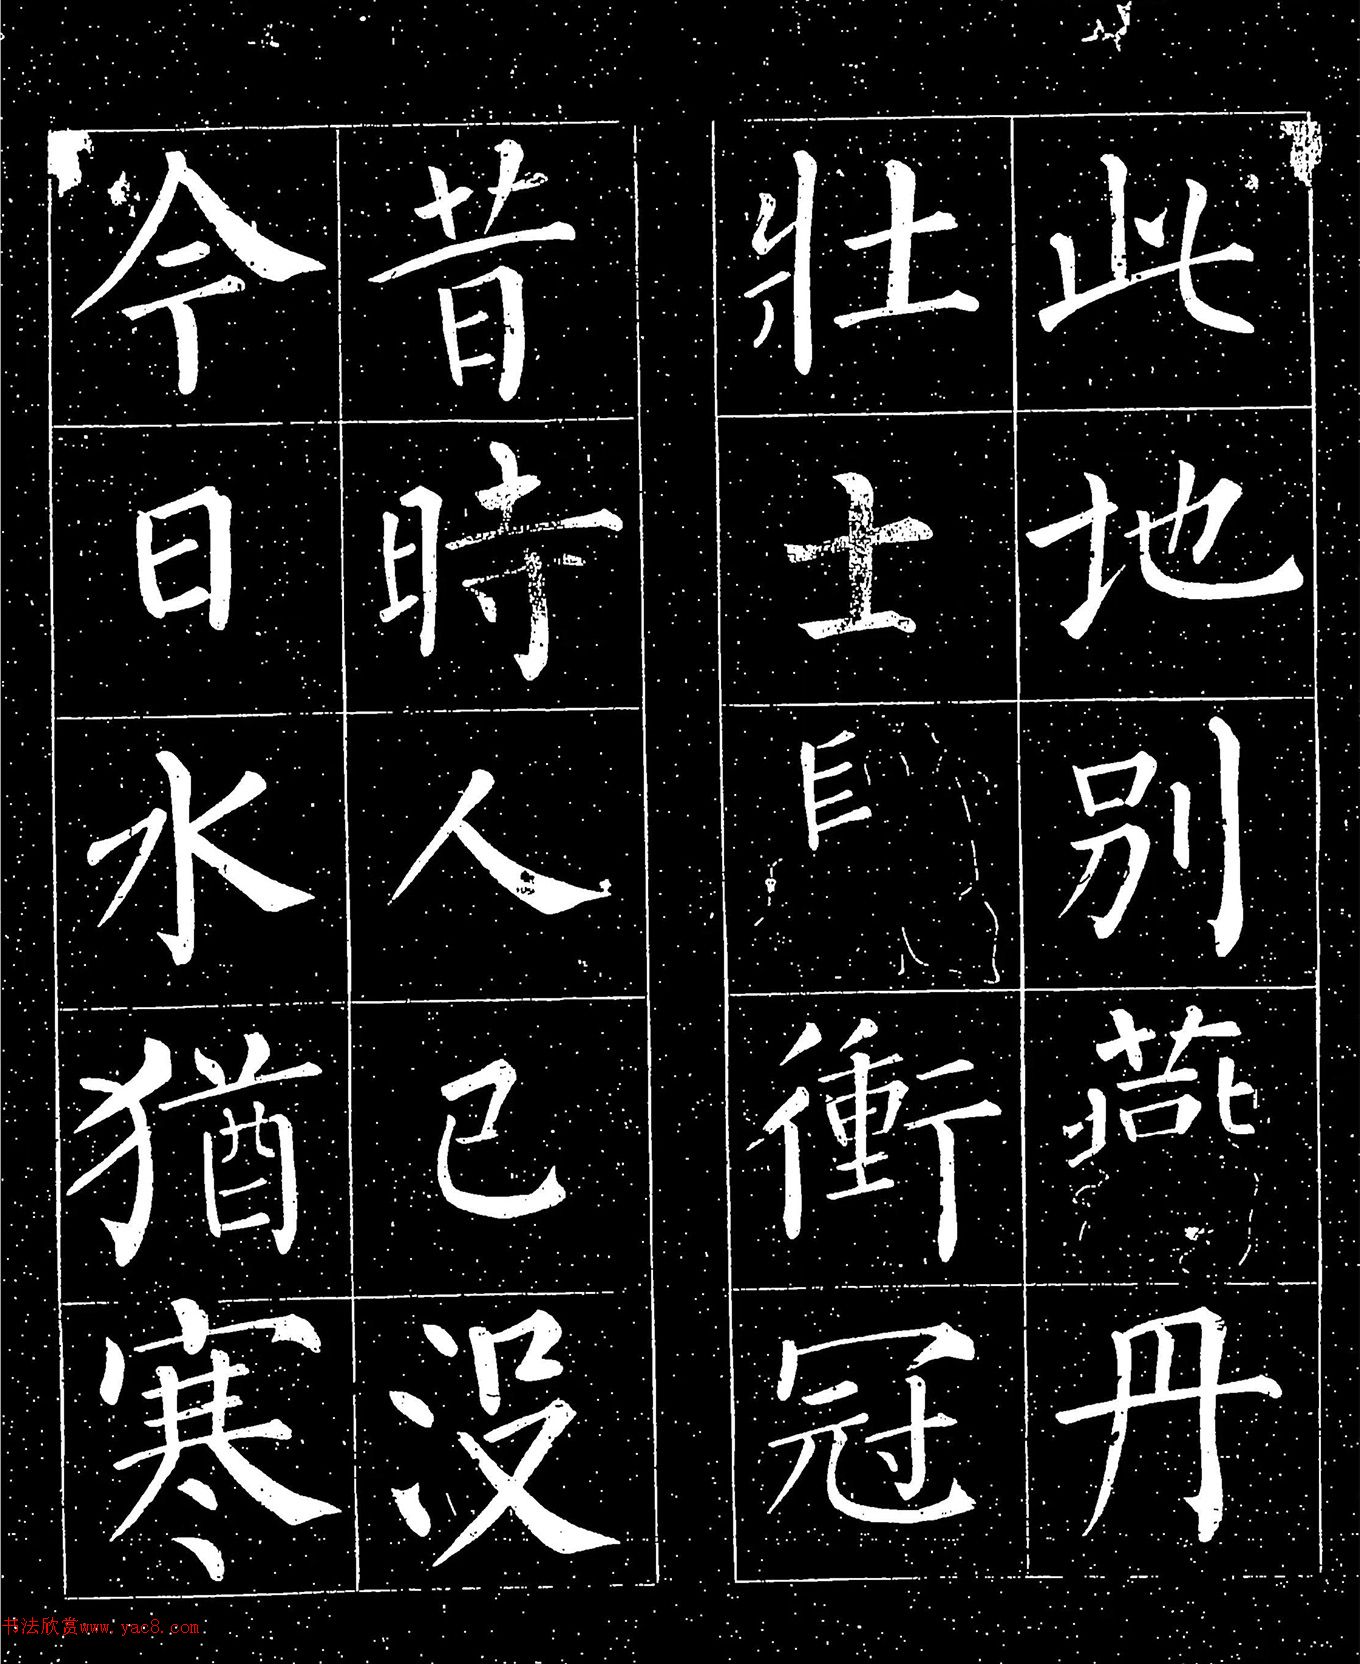 此地別燕丹
壯士衝冠
昔時人已沒
今日水猶寒
书法欣赏www.yac8.com